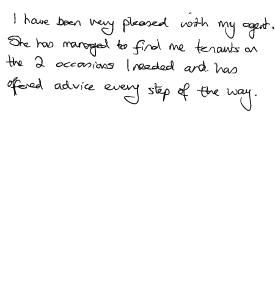 I have been very pleased with my agent.
She has managed to find me tenants on
the 2 occasions I needed and has
offered advice every step of the way.